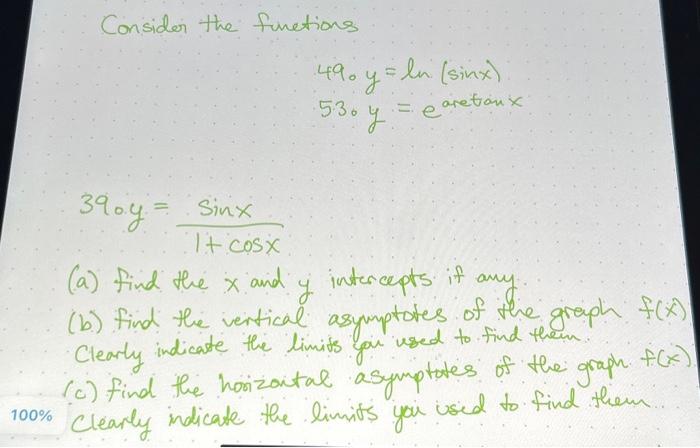 Consider the functions
49. y = ln (sinx)
53. y = e^arctanx
39. y = sinx / 1 + cosx
(a) find the x and y intercepts if any.
(b) find the vertical asymptotes of the graph f(x)
Clearly indicate the limits you used to find them.
(c) find the horizontal asymptotes of the graph f(x)
100% Clearly indicate the limits you used to find them.